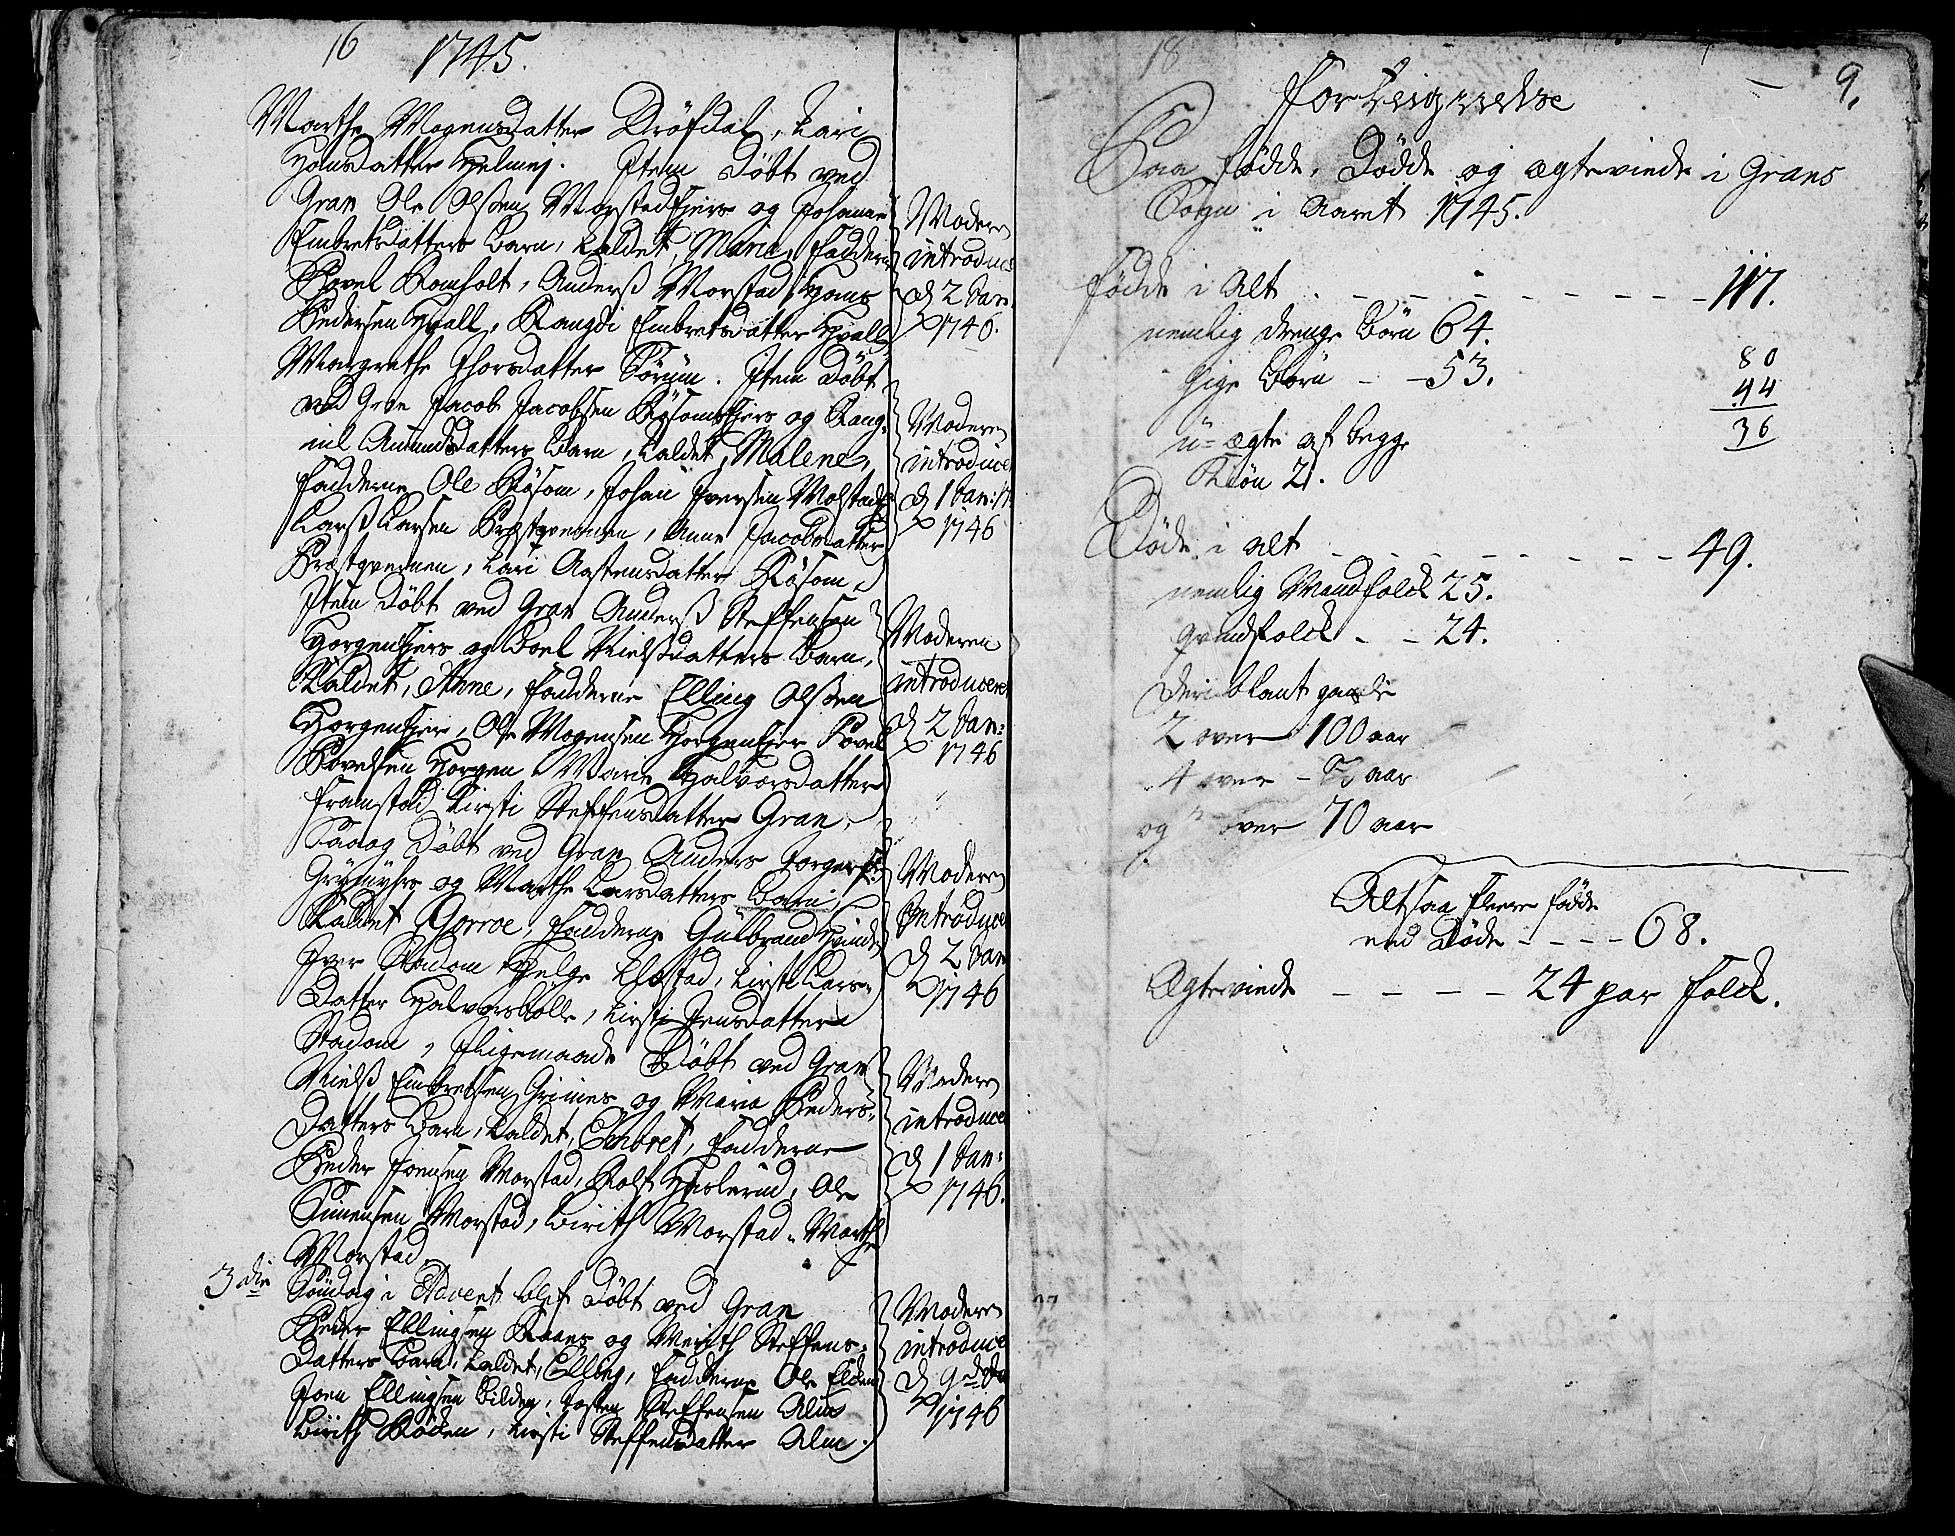 16 1745.
Marthe Mogensdatter Dröfdal, Kari
Hansdatter Helmej. Item Döbt ved
Gran Ole Olssen Morstadejers og Johanne
Embretsdatters Barn, kaldet, Maria, Fadderne
Povel Ramholt, Anderss Morstad, Hans
Pedersen Hvall, Rangdi Embretsdatter Hvall,
Margrethe Thorsdatter Sörum. Item Döbt
ved Gran Jacob Jacobsen Röisomejers og Rang-
nil Amundsdatters Barn, kaldet, Malene,
Fadderne Ole Röisom, Johan Iversen Molstad,
Larss Larsen Præstqvernen, Anne Jacobsdatter
Præstqvernen, Kari Aastensdatter Röisom,
Item Döbt ved Gran Anderss Steffensen
Horgenejers og Boel Nielssdatters Barn,
kaldet, Anne, Fadderne Elling Olssen
Horgenejer, Ole Mogensen Horgenejer Povel
Povelsen Horgen, Marie Halvorsdatter
Framstad, Kirsti Steffensdatter Gran,
Saaog Döbt ved Gran Anders
Grÿmyhrs og Marthe Larsdatters Barn,
kaldet Gorroe, Fadderne Gulbrand Hvinden
Iver Stadom, Helge Elstad, Kirsti Lars-
datter Halvorsbölle, Kirsti Jensdatter
Stadom, Iligemaade Döbt ved Gran
Nielss Embretsen Grimes og Maria Peders-
datters Barn, kaldet, Embret, Fadderne
Peder Joensen Morstad, Rolf Hislerud, Ole
Simensen Morstad, Birith Morstad, Marthe
Morstad.
3die Söndag i Advent blef Döbt ved Gran
Peder Ellingsen Raaens og Merith Steffens-
datters Barn, kaldet, Elling, Fadderne Ole Elden
Joen Ellingsen Bilden, Josten Steffensen Alm
Birith Röden, Kirsti Steffensdatter Alm.
Moderen
introduceret
d 2 Jan:
1746.
Moderen
introduceret
d 1 Jan:
1746
Moderen
introduceret
d 2 Jan:
1746
Moderen
Introduceret
d 2 Jan
1746
Moderen
introduceret
d 1 Jan:
1746.
Moderen
introduceret
d 9de
1746
18 9.
Forteignelse
Paa födde, Dödde og ægteviede i Grans
Sogn i Aaret 1745.
födde i Alt - - - - - - - 117.
nemlig drenge Börn 64.
Pige Börn - - 53.
u-ægte af begge
Kiön 2.
80
44
36
Döde i Alt - - - - - - - 49.
nemlig Mandfolck 25.
Qvindfolck - - 24.
deriblant gamle
2 over 100 aar
4 over - aar
og over 70 aar
Altsaa fleere födde
end Döde - - - - 68.
Ægteviede - - - - 24 par folck.